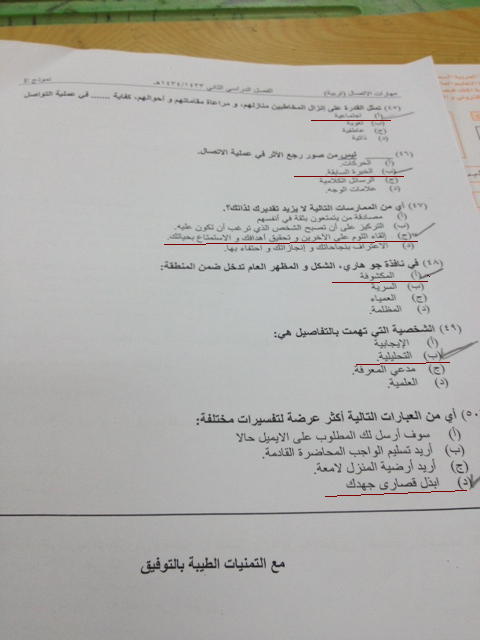 مهارات الاتصال (تربية) الفصل الدراسي الثاني ١٤٣٤/١٤٣٣هـ نموذج
(٤٥) تمثل القدرة على إنزال المخاطبين منازلهم، و مراعاة مقاماتهم و أحوالهم، كفاية ...... في عملية التواصل
(أ) اجتماعية
(ب) لغوية
(ج) عاطفية
(د) ذاتية
(٤٦) ______ ليس من صور رجع الأثر في عملية الاتصال.
(أ) الحركات.
(ب) الخبرة السابقة.
(ج) الرسائل الكلامية
(د) علامات الوجه.
(٤٧) أي من الممارسات التالية لا يزيد تقديرك لذاتك؟.
(أ) مصادقة من يتمتعون بثقة في أنفسهم
(ب) التركيز على أن تصبح الشخص الذي ترغب أن تكون عليه.
(ج) إلقاء اللوم على الآخرين و تحقيق أهدافك و الاستمتاع بحياتك.
(د) الاعتراف بنجاحاتك و إنجازاتك و احتفاء بها.
(٤٨) في نافذة جو هاري، الشكل و المظهر العام تدخل ضمن المنطقة:
(أ) المكشوفة
(ب) السرية
(ج) العمياء
(د) المظلمة.
(٤٩) الشخصية التي تهمت بالتفاصيل هي:
(أ) الإيجابية
(ب) التحليلية.
(ج) مدعي المعرفة.
(د) العلمية.
(٥٠) أي من العبارات التالية أكثر عرضة لتفسيرات مختلفة:
(أ) سوف أرسل لك المطلوب على الايميل حالا
(ب) أريد تسليم الواجب المحاضرة القادمة.
(ج) أريد أرضية المنزل لامعة.
(د) ابذل قصارى جهدك
مع التمنيات الطيبة بالتوفيق